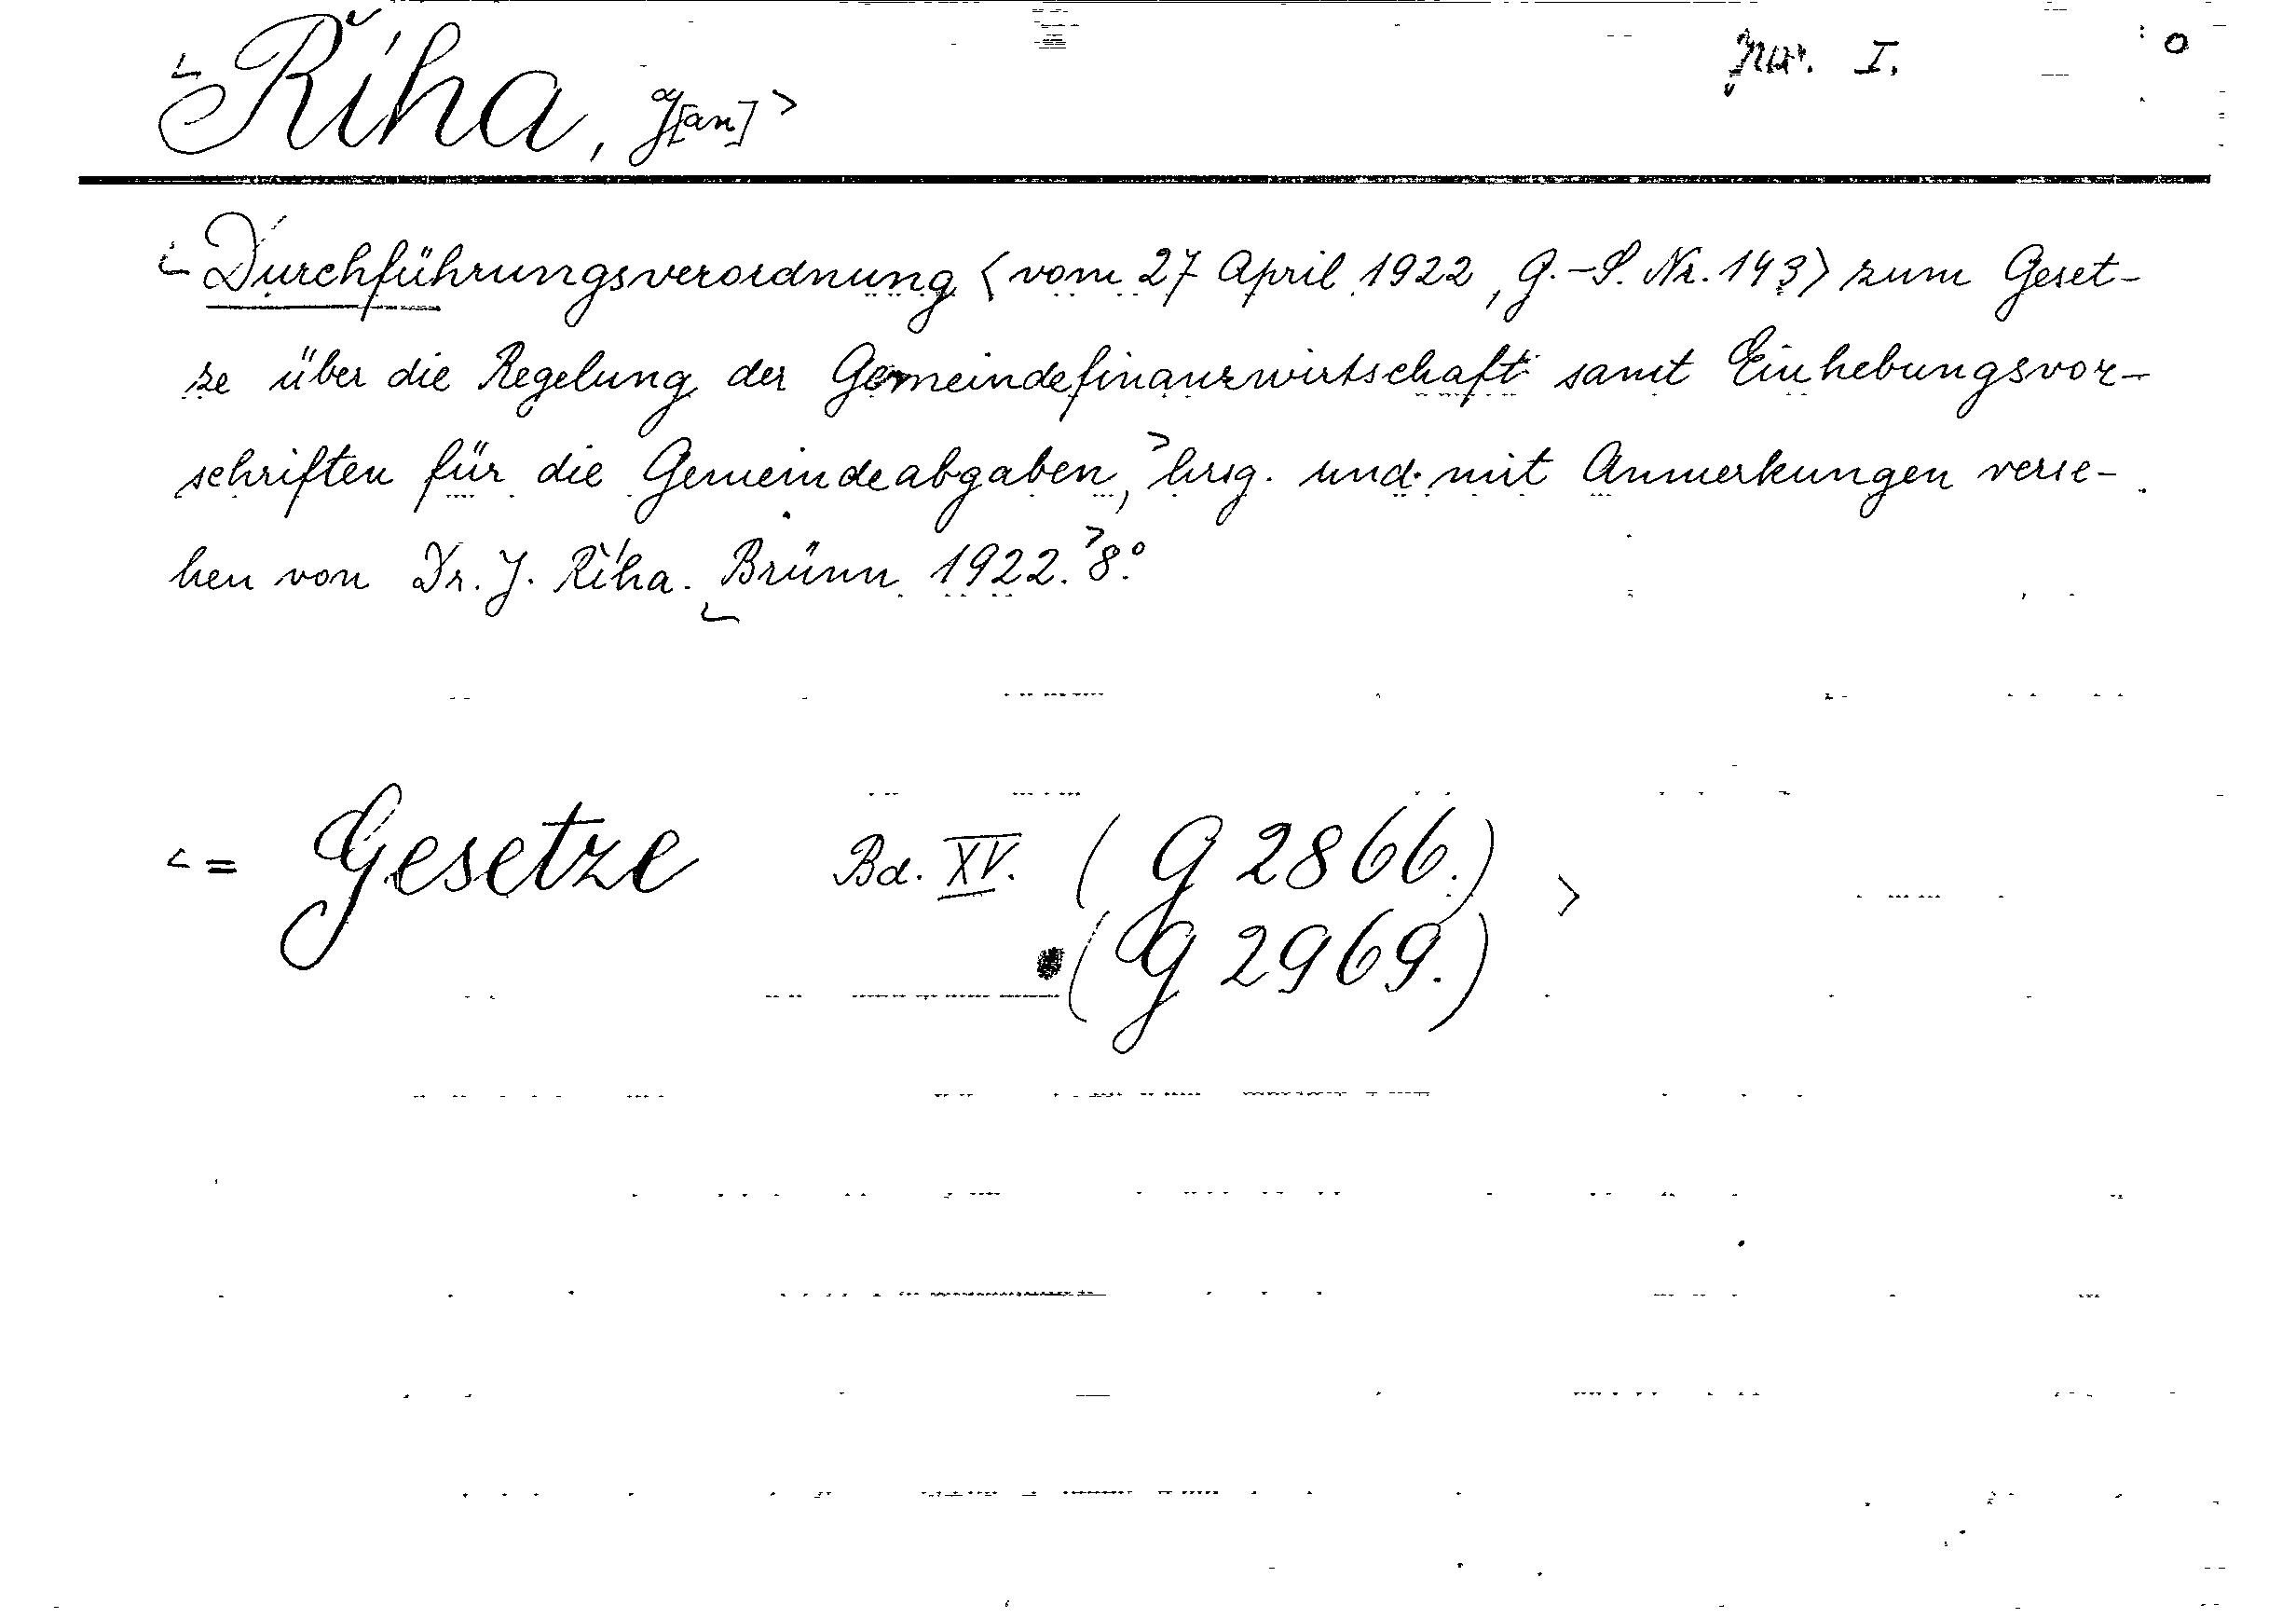 Říha, J[an]
Jur. I.
Durchführungsverordnung (vom 27 April 1922, G.-S. Nr. 143) zum Geset-
ze über die Regelung der Gemeindefinanzwirtschaft samt Einhebungsvor-
schriften für die Gemeindeabgaben, hrsg. und mit Anmerkungen verse-
hen von Dr. J. Říha. Brünn 1922. 8°.
= Gesetze Bd. XV. (G 2866.)
(G 2969.)